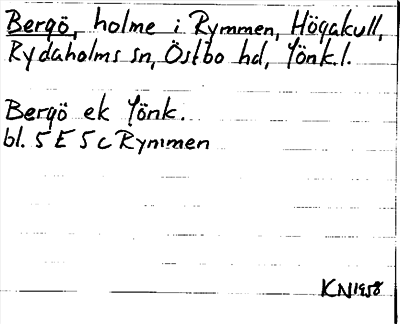 Bergö, holme i Rymmen, Högakull,
Rydaholms sn, Östbo hd, Jönk.l.
Bergö ek Jönk.
bl. 5 E 5 c Rymmen
KN1958